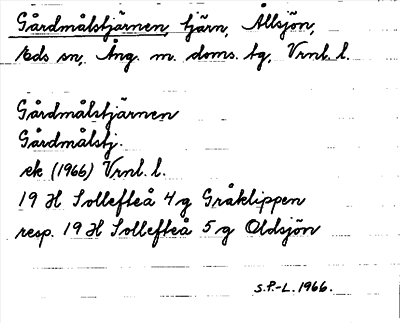 Gårdmålstjärnen, tjärn, Ållsjön,
Eds sn, Ång. m. doms. tg, Vrnl. l.
Gårdmålstjärnen
Gårdmålstj.
ek (1966) Vrnl. l.
19 H Sollefteå 4 g Gråklippen
resp. 19 H Sollefteå 5 g Oldsjön
S.P.-L. 1966.